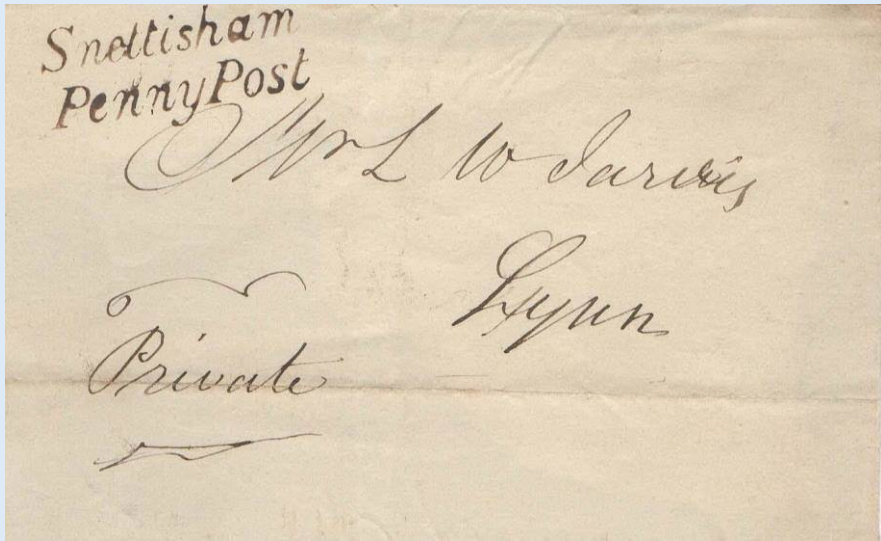 Snettisham
Penny Post
Mr L W Jarvis
Lynn
Private